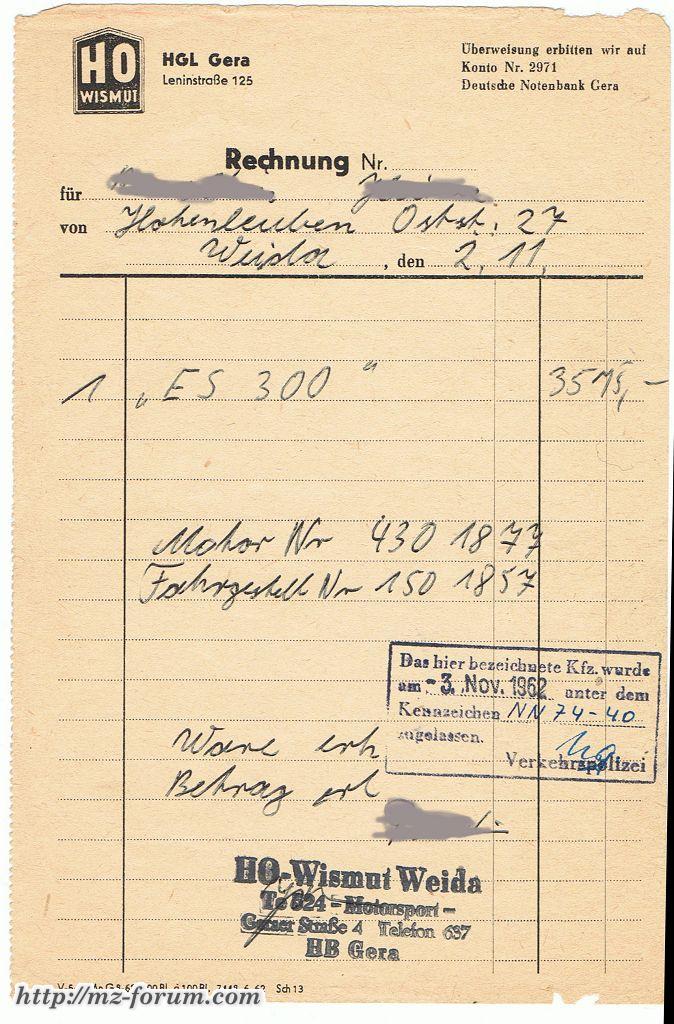 HO
WISMUT
HGL Gera
Leninstraße 125
Überweisung erbitten wir auf
Konto Nr. 2971
Deutsche Notenbank Gera
Rechnung Nr.
für
von Hohenleuben Ostst. 27
Weida, den 2. 11.
1 „ES 300" 3575,-
Motor Nr 430 1877
Fahrgestell Nr 150 1857
Das hier bezeichnete Kfz. wurde
am -3. Nov. 1962 unter dem
Kennzeichen NN 74-40
zugelassen.
Verkehrspolizei
Ware erh
Betrag erl
HO-Wismut Weida
Te 624 - Motorsport -
Geraer Straße 4 Telefon 637
HB Gera
Sch 13
http://mz-forum.com